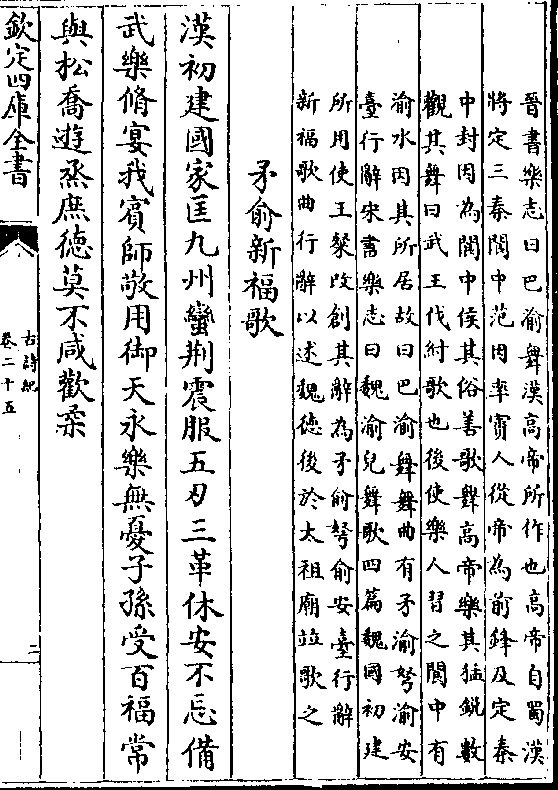 晉書樂志曰巴渝舞漢高帝所作也高帝自蜀漢
將定三秦閬中范因率賨人從帝為前鋒及定秦
中封因為閬中侯其俗善歌舞高帝樂其猛銳數
觀其舞曰武王伐紂歌也後使樂人習之閬中有
渝水因其所居故曰巴渝舞舞曲有矛渝弩渝安
臺行辭宋書樂志曰魏渝兒舞歌四篇魏國初建
所用使王粲改創其辭為矛俞弩俞安臺行辭
新福歌曲行辭以述魏德後於太祖廟並歌之
矛俞新福歌
漢初建國家匡九州蠻荆震服五刃三革休安不忘備
武樂脩宴我賓師敬用御天永樂無憂子孫受百福常
與松喬遊烝庶德莫不咸歡柔
欽定四庫全書
古詩紀
卷二十五
二